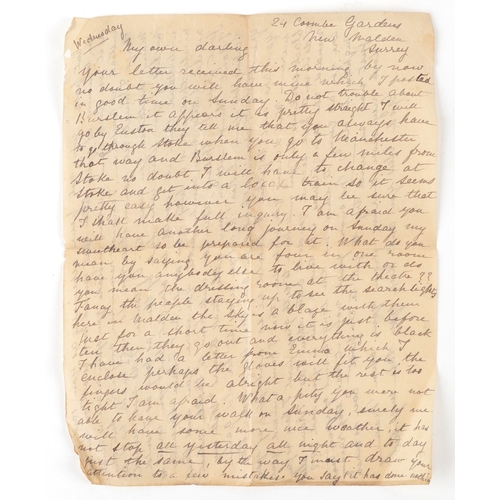 Wednesday
24 Coombe Gardens
New Malden
Surrey
My own darling
Your letter received this morning by now
no doubt you will have mine which I posted
in good time on Sunday. Do not trouble about
Burslem it appears it is pretty straight. I will
go by Euston they tell me that you always have
to go through Stoke when you go to Manchester
that way and Burslem is only a few miles from
Stoke no doubt I will have to change at
Stoke and get into a local train so it seems
pretty easy however you may be sure that
I shall make full inquiry. I am afraid you
will have another long journey on Sunday my
sweetheart so be prepared for it. What do you
mean by saying you are four in one room
have you anybody else to live with or do
you mean the dressing room at the theatre??
Fancy the people staying up to see the searchlights
here in Malden the sky is a blaze with them
just for a short time now it is just before
ten then they go out and everything is black
I have had a letter from Emma which I
enclose perhaps the gloves will fit you the
fingers would be alright but the rest is too
tight I am afraid. What a pity you were not
able to have your walk on Sunday, surely we
will have some more nice weather. it has
not stop all yesterday all night and to day
just the same, by the way I must draw your
attention to a few mistakes. you say it has done